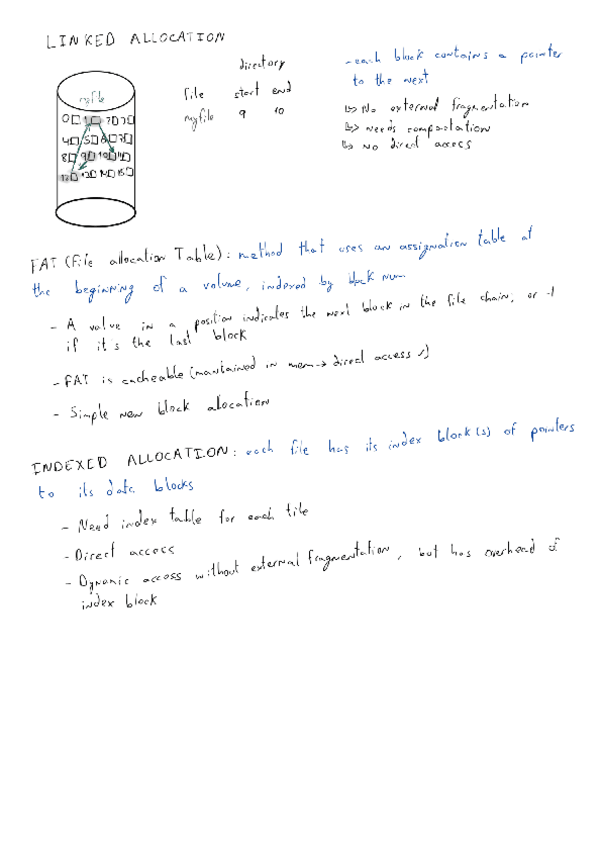 LINKED ALLOCATION
directory
file start end
myfile 9 10
myfile
0 1 2 3
4 5 6 7
8 9 10 11
12 13 14 15
- each block contains a pointer
to the next
↳ No external fragmentation
↳ needs compactation
↳ No direct access
FAT (File allocation Table): method that uses an assignation table at
the beginning of a volume, indexed by block num
- A value in a position indicates the next block in the file chain, or -1
if it's the last block
- FAT is cacheable (mantained in mem → direct access ✓)
- Simple new block allocation
INDEXED ALLOCATION: each file has its index block(s) of pointers
to its data blocks
- Need index table for each file
- Direct access
- Dynamic access without external fragmentation, but has overhead of
index block